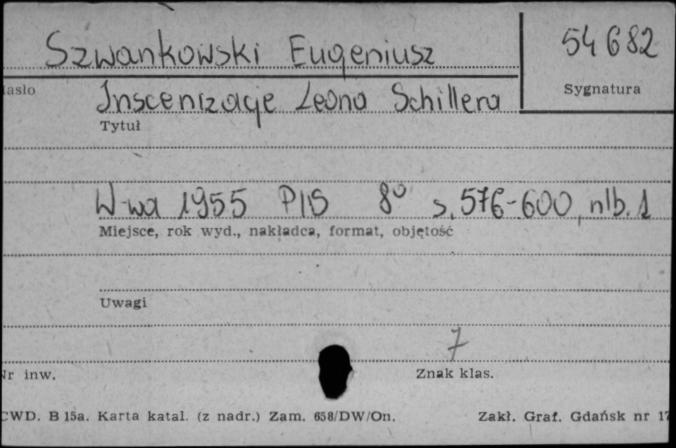 Szwankowski Eugeniusz
54682
Hasło
Sygnatura
Inscenizacje Leona Schillera
Tytuł
W-wa 1955 PIS 8° s. 576-600, nlb. 1
Miejsce, rok wyd., nakładca, format, objętość
Uwagi
7
Nr inw.
Znak klas.
CWD. B 15a. Karta katal. (z nadr.) Zam. 658/DW/On.
Zakł. Graf. Gdańsk nr 17